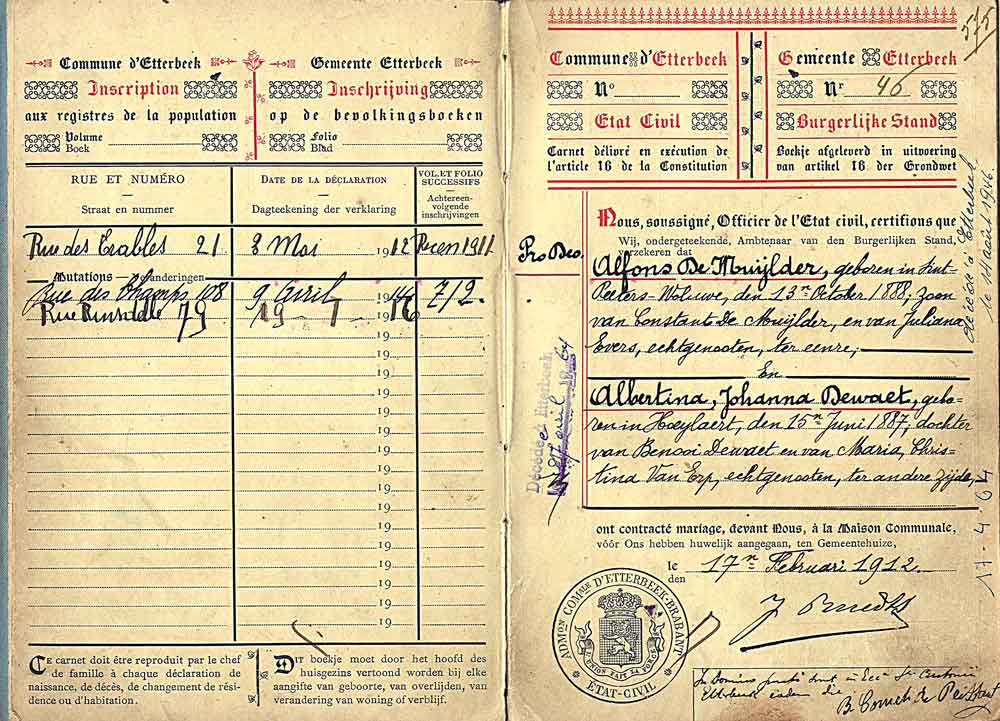 Commune d'Etterbeek
Inscription
aux registres de la population
Volume
Boek
Gemeente Etterbeek
Inschrijving
op de bevolkingsboeken
Folio
Blad
RUE ET NUMÉRO
Straat en nummer
DATE DE LA DÉCLARATION
Dagteekening der verklaring
VOL. ET FOLIO
SUCCESSIFS
Achtereen-
volgende
inschrijvingen
Rue des Erables 21 3 Mai 1912 Recen 1911
Mutations — Veranderingen
Rue des Champs 108 9 Avril 1914 7/2.
Rue 79 19 - 7 - 1916
19
19
19
19
19
19
19
19
19
19
19
19
19
19
19
19
CE carnet doit être reproduit par le chef
de famille à chaque déclaration de
naissance, de décès, de changement de rési-
dence ou d'habitation.
DIT boekje moet door het hoofd des
huisgezins vertoond worden bij elke
aangifte van geboorte, van overlijden, van
verandering van woning of verblijf.
575
Commune d'Etterbeek
No
Etat Civil
Carnet délivré en exécution de
l'article 16 de la Constitution
Gemeente Etterbeek
Nr 46
Burgerlijke Stand
Boekje afgeleverd in uitvoering
van artikel 16 der Grondwet
Nous, soussigné, Officier de l'Etat civil, certifions que
Wij, ondergeteekende, Ambtenaar van den Burgerlijken Stand,
verzekeren dat
Pro Deo.
Alfons De Muijlder, geboren in Sint-
Peeters-Woluwe, den 13n October 1888, zoon
van Constant De Muijlder, en van Juliana
Evers, echtgenooten, ter eenre;
En
Albertina, Johanna Dewaet, gebo-
ren in Hoeylaert, den 15n Juni 1887, dochter
van Benooi Dewaet en van Maria, Chris-
tina Van Erp, echtgenooten, ter andere zijde,
décédé à Etterbeek
le 11 août 1946
Décédée Etterbeek
17 avril 1964
17-4-64
ont contracté mariage, devant Nous, à la Maison Communale,
vóór Ons hebben huwelijk aangegaan, ten Gemeentehuize,
le
den 17n Februari 1912.
ADMON COMMLE D'ETTERBEEK-BRABANT
L'UNION FAIT LA FORCE
ETAT-CIVIL
In Domino juncti sunt in Eccl. St